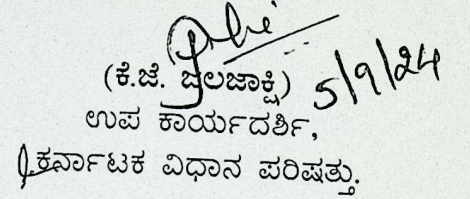 (ಕೆ.ಜೆ. ಜಲಜಾಕ್ಷಿ) 5/9/24
ಉಪ ಕಾರ್ಯದರ್ಶಿ,
ಕರ್ನಾಟಕ ವಿಧಾನ ಪರಿಷತ್ತು.